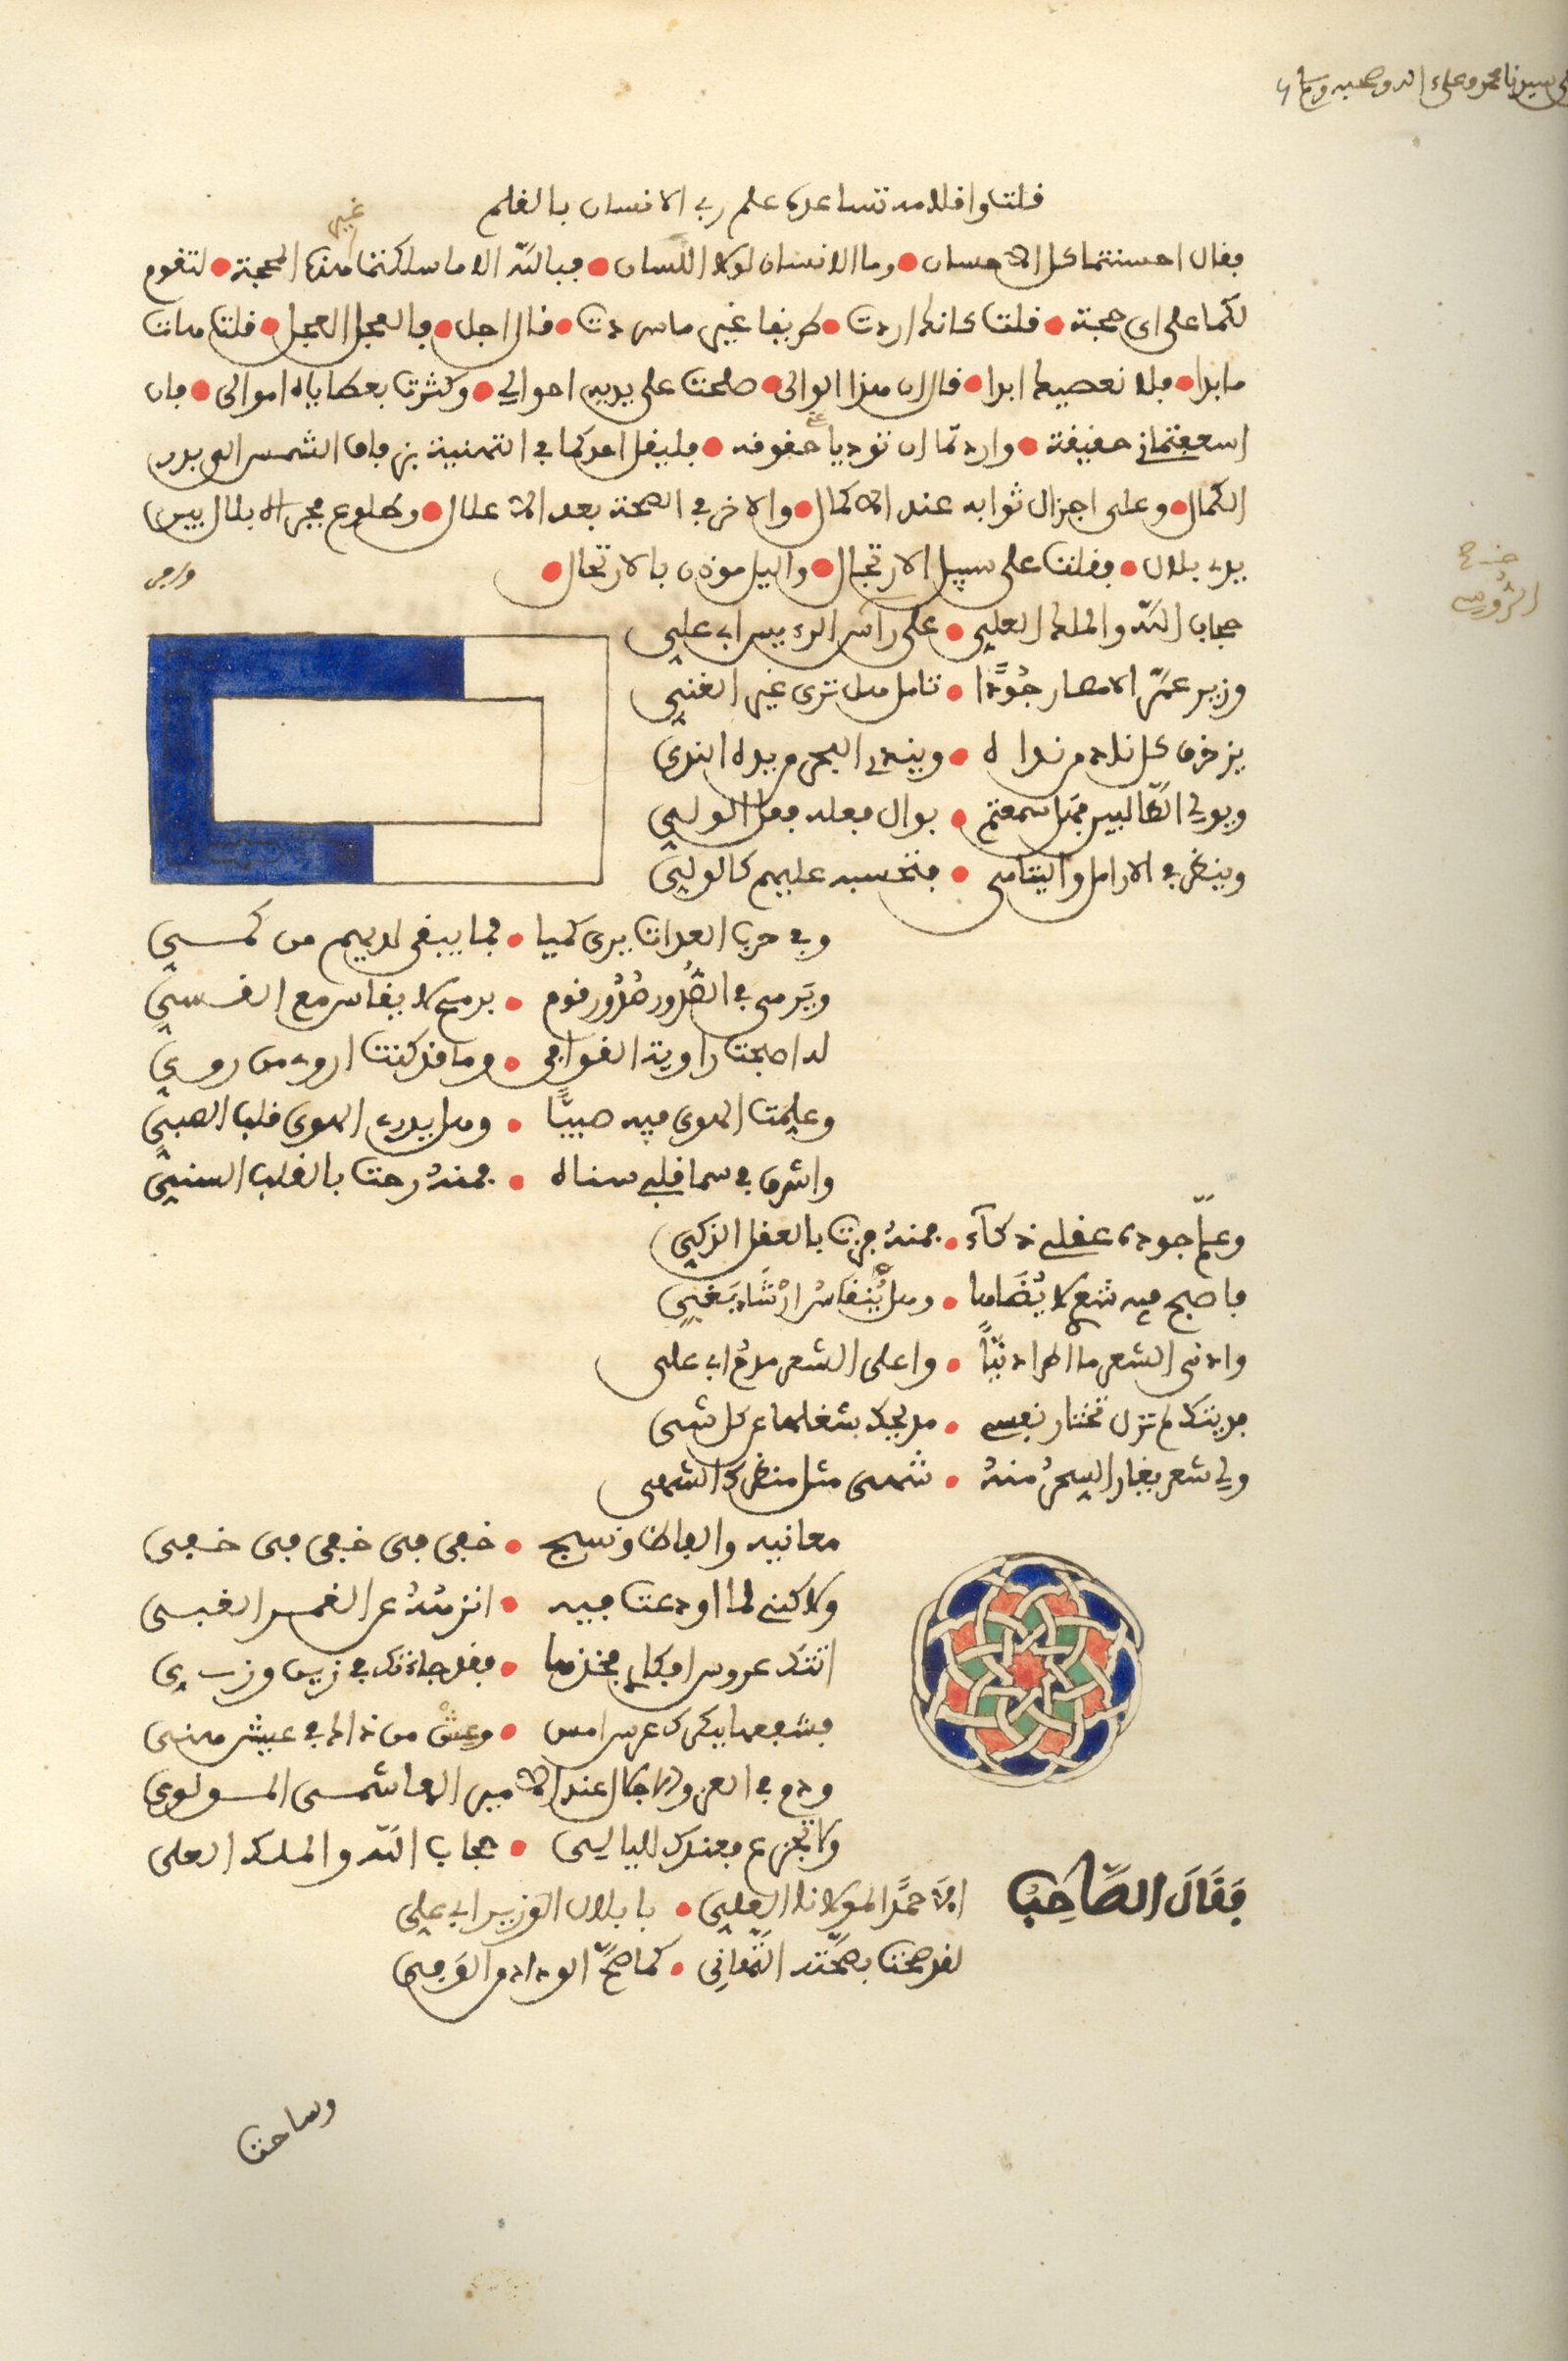 سيدنا محمد وعلى اله وصحبه وسلم
قلت واقلامه تساعده علم رب الانسان بالقلم
غير
فقال احسنتما كل الاحسان • وما الانسان لولا اللسان • فبالله الا ما سلكتما هذه المحجة • لتقوم
لكما على اي حجة • قلت كانك اردت • طريقا غير ما سردت • قال اجل • فالعجل العجل • قلت هات
ما بدا • فلا نعصيك ابدا • قال ان هذا الوالي • صلحت على يديه احوالي • وكثرت بعطاياه اموالي • فان
اسعفتماني حقيقة • واردتما ان توديا حقوقه • فليقل احدكما في التهنية بزفاف الشمس الى بدر
الكمال • وعلى اجزال ثوابه عند الاكمال • والاخر في الصحة بعد الاعلال • وطلوع فجر الابلال بين
يدي بلال • فقلت على سبيل الارتجال • والليل موذن بالارتحال •
خرج
حجاب الله والملك العلي • على راس الرءيس ابي علي
وزير عم الامصار جودا • تامل هل ترى غير الغني
يزخرف كل ناد من نداه • ويندي البحر من يده الندي
ويولي الطالبين قبل سمعتم • بوال فعله فعل الولي
وينظر في الارامل واليتامى • فتحسبه عليهم كالولي
وفي حرب العدات يرى كميا • فما يبقى لديهم من كمي
ويرمي في الصدور صدور قوم • برمح لا يقاس مع القسي
له اصبحت راوية القوافي • وما قد كنت اروي من روي
وعلمت الهوى فيه صبيا • وهل يدري الهوى قلب الصبي
واشرق في سما قلبي سناه • فمنه رحت بالقلب السني
وعلم جوده عقلي ذكاء • فمنه فزت بالعقل الزكي
فاصبح فيه شعري لا يضاهى • وهل ينقاس ارشاد بغي
وادنى الشعر ما اطرا دنيا • واعلى الشعر مدح ابي علي
فديتك لم تزل تختار نفسي • مديحك شغلها عن كل شي
ولي شعر يغار السحر منه • شهي مثل منظرك الشهي
معانيه والفاظ ونسج • خفي في خفي في خفي
ولاكني لما اودعت فيه • انزهه عن الغمر الغبي
اتتك عروس افكار فخذها • فقد جاءتك في زين وزي
فشفعها ببكرك عرس امس • وعش من ذا لذا في عيش هني
ودم في العز والاجلال عند الامير الهاشمي المولوي
ولا تجزع فعندك لليالي • حجاب الله والملك العلي
فقال الصاحب
الا حمدا لمولانا العلي • بابلال الوزير ابي علي
لقد صحت بصحته التهاني • كما صح الوداد من الوفي
وساحت